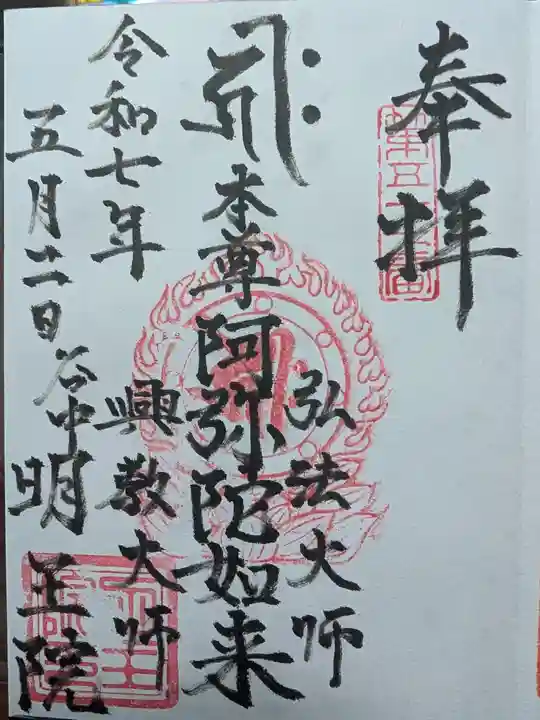 奉拝
弘法大師
本尊阿弥陀如来
興教大師
令和七年
五月十一日谷中明王院